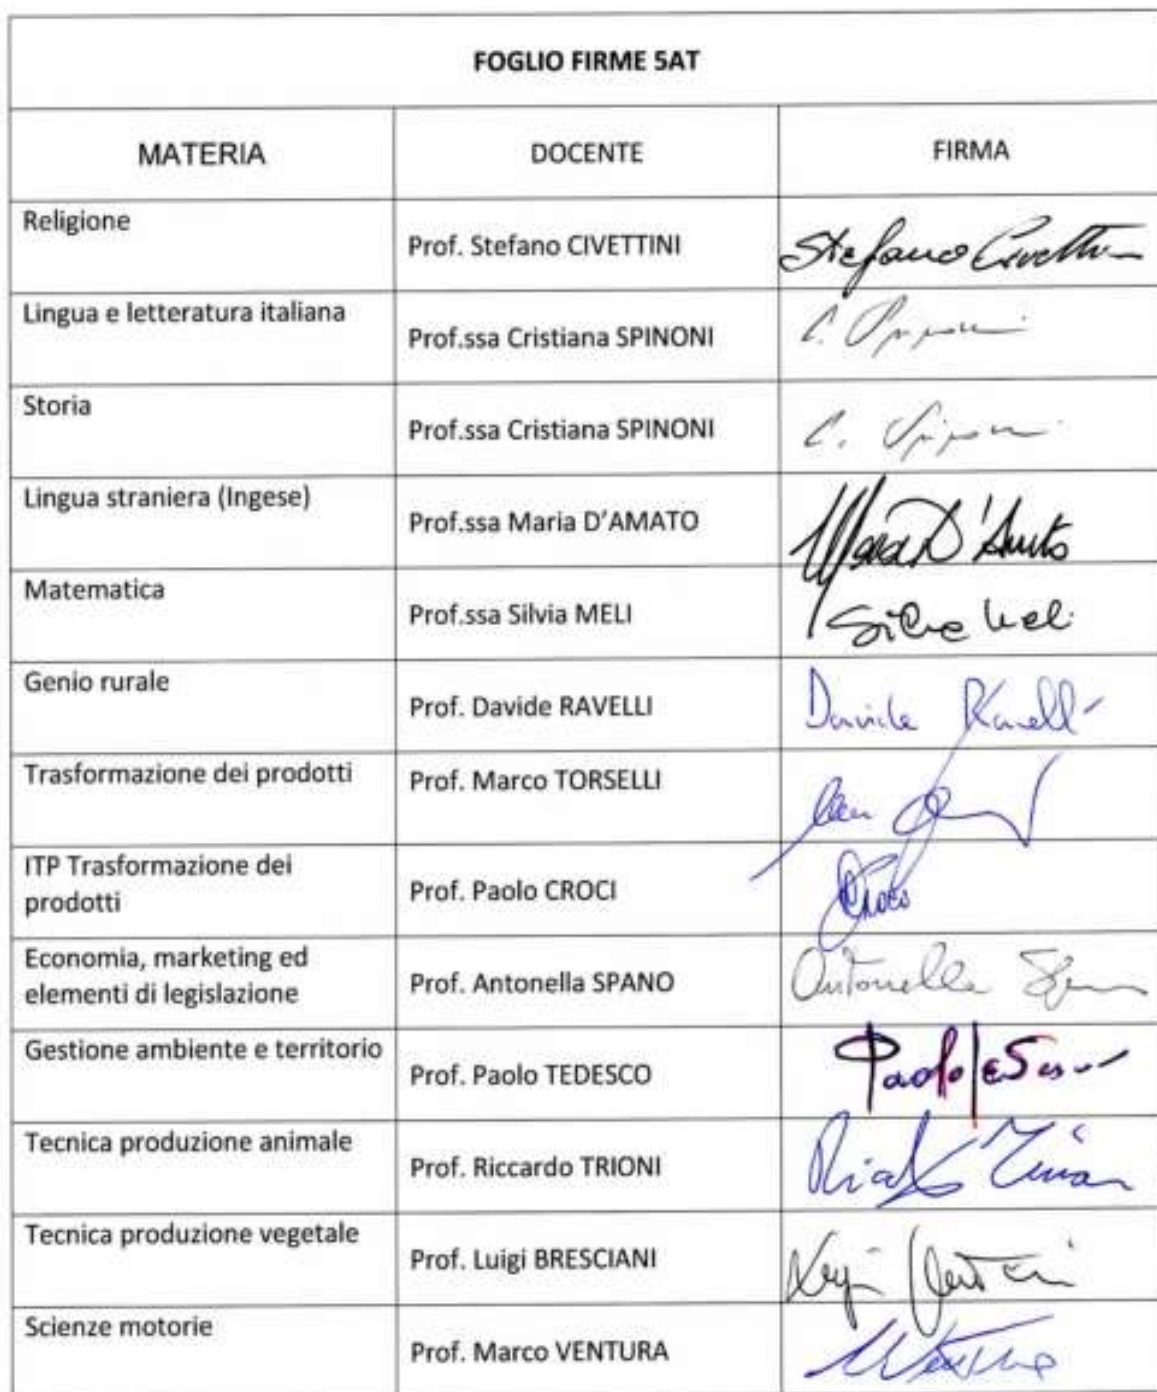 FOGLIO FIRME 5AT
MATERIA DOCENTE FIRMA
Religione
Prof. Stefano CIVETTINI Stefano Civettini
Lingua e letteratura italiana
Prof.ssa Cristiana SPINONI C. Spinoni
Storia
Prof.ssa Cristiana SPINONI C. Spinoni
Lingua straniera (Ingese)
Prof.ssa Maria D'AMATO Maria D'Amato
Matematica
Prof.ssa Silvia MELI Silvia Meli
Genio rurale
Prof. Davide RAVELLI Davide Ravelli
Trasformazione dei prodotti Prof. Marco TORSELLI
ITP Trasformazione dei
prodotti
Prof. Paolo CROCI Croci
Economia, marketing ed
elementi di legislazione
Prof. Antonella SPANO Antonella Spano
Gestione ambiente e territorio
Prof. Paolo TEDESCO Paolo Tedesco
Tecnica produzione animale
Prof. Riccardo TRIONI
Tecnica produzione vegetale
Prof. Luigi BRESCIANI Luigi
Scienze motorie
Prof. Marco VENTURA